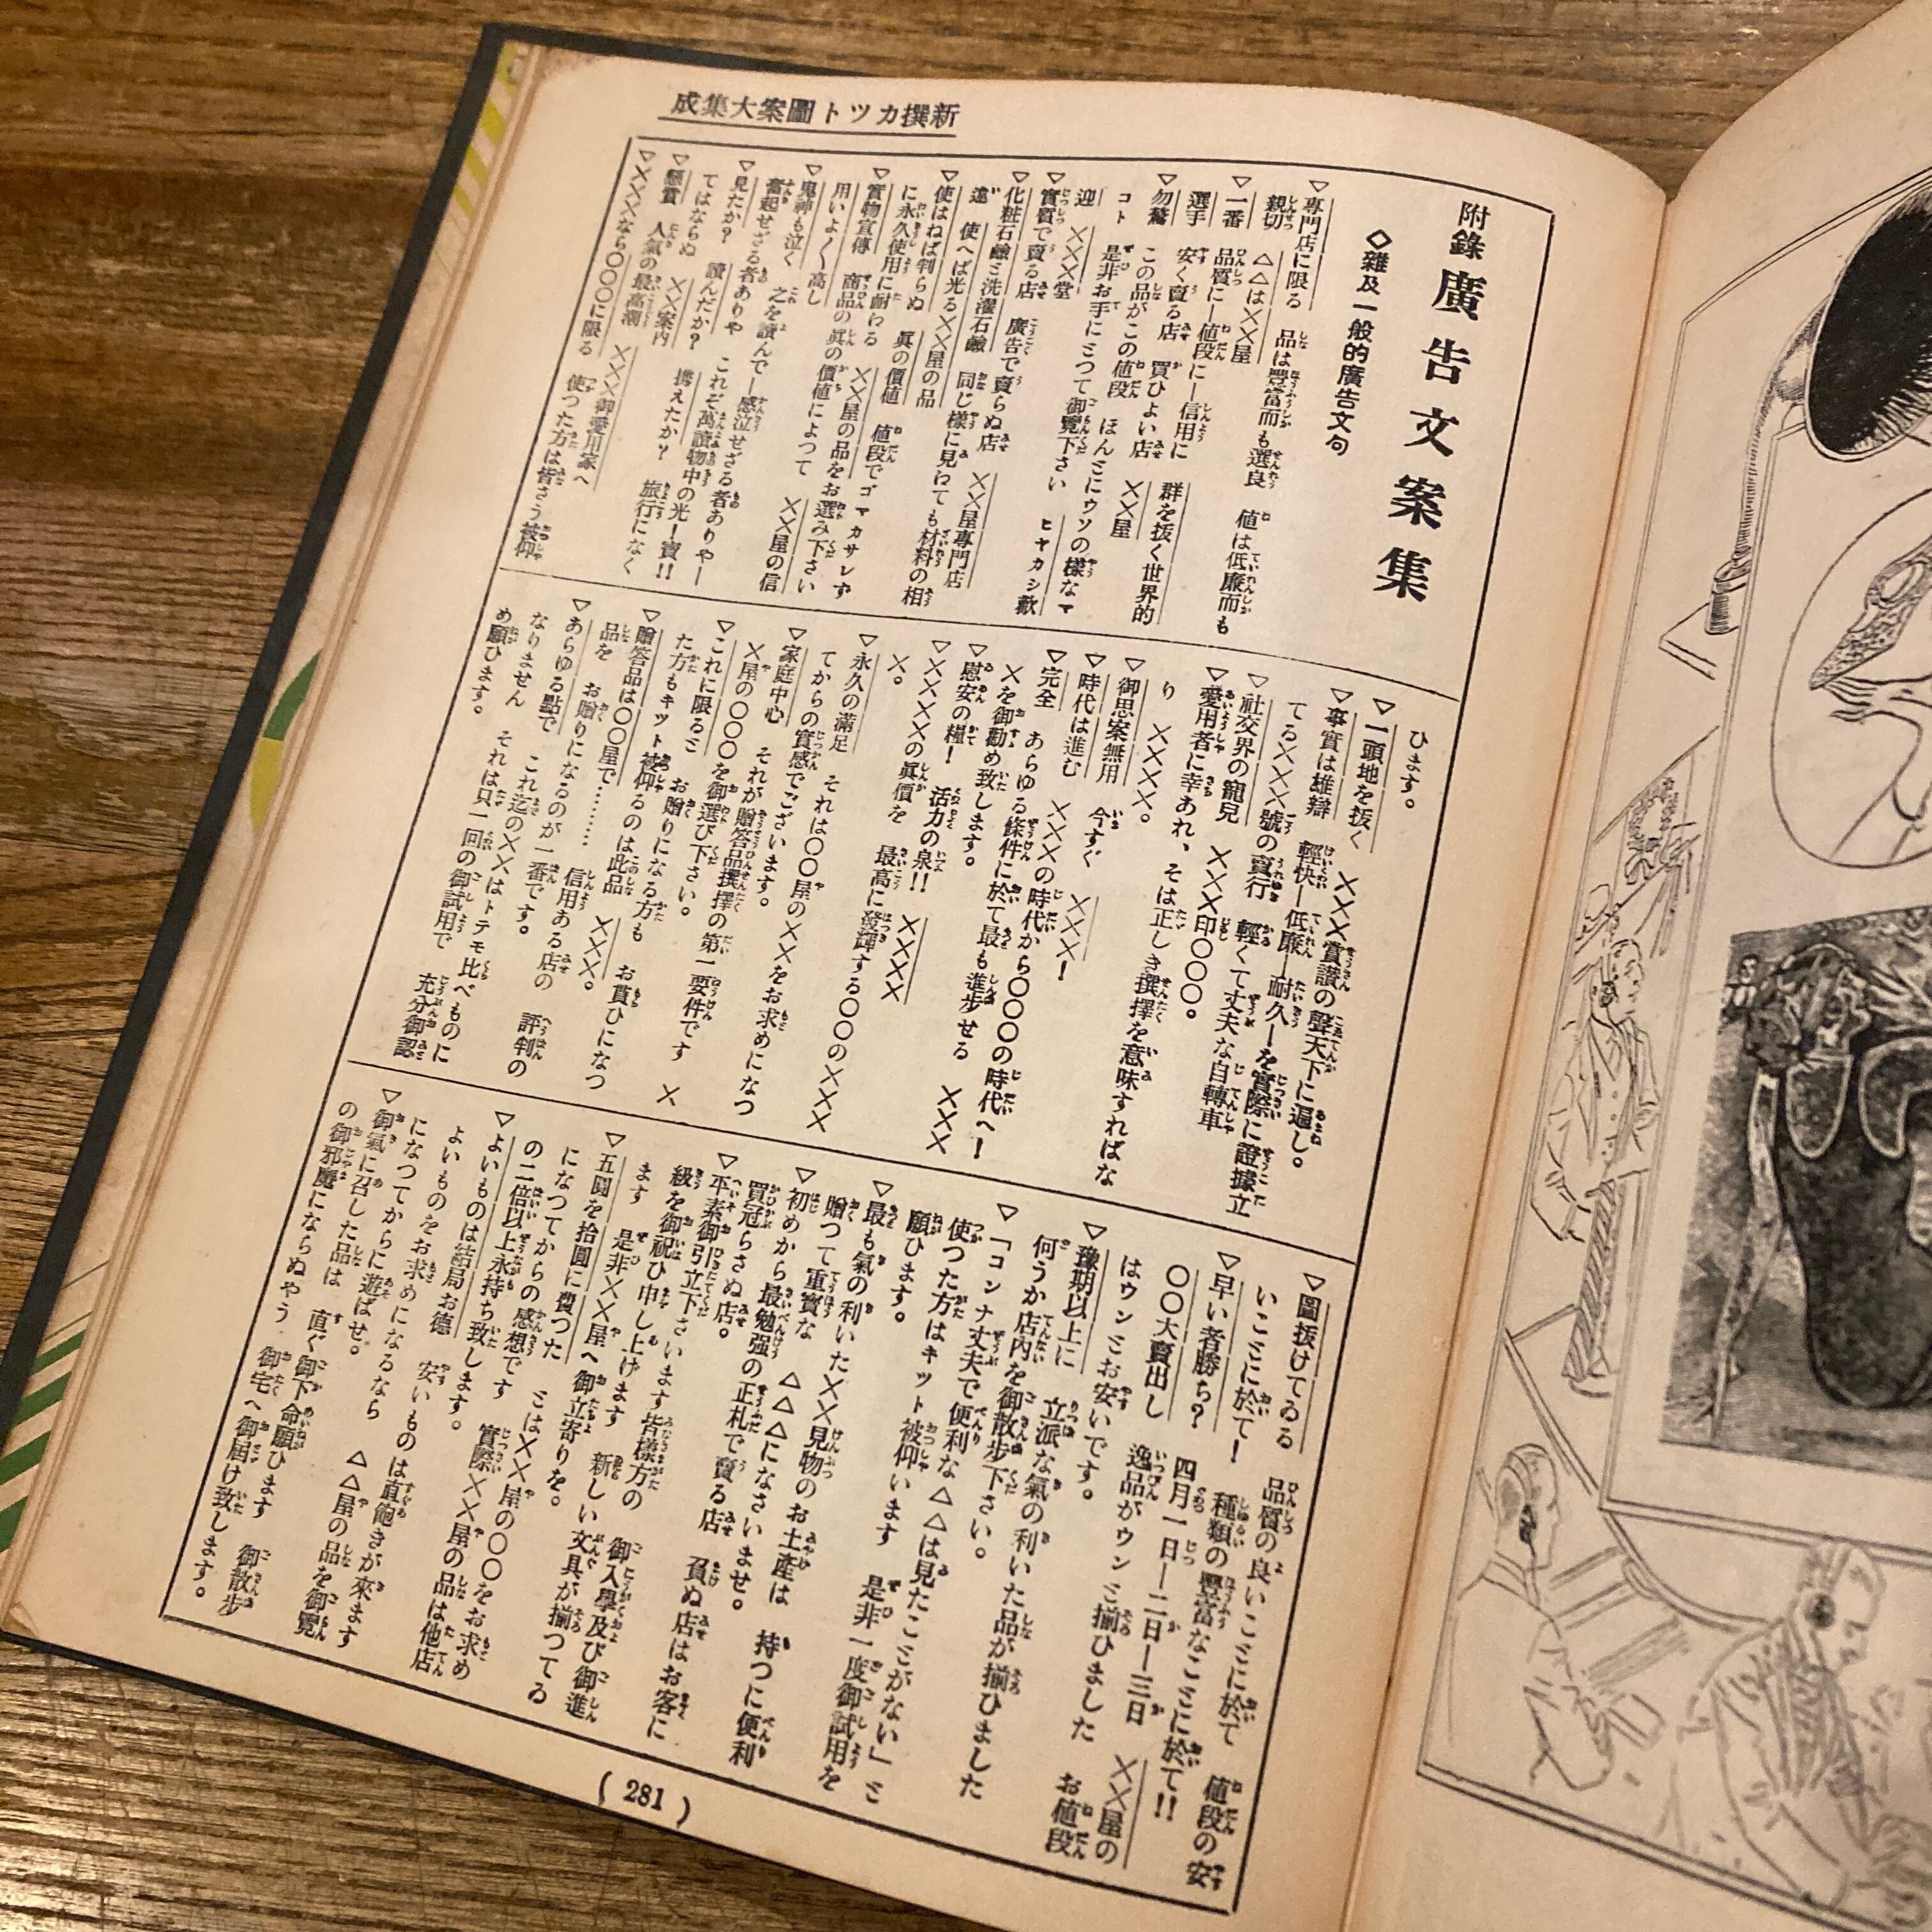 成集大案圖トツカ撰新
附錄 廣告文案集
◇雜及一般的廣告文句
▽專門店に限る 品は豐富而も選良 値は低廉而も
親切 △△は××屋
▽一番 品質に—値段に—信用に 群を抜く世界的
選手 安く賣る店 買ひよい店 ××屋
▽勿驚 この品がこの値段 ほんミにウソの樣なマ
コト 是非お手にミつて御覽下さい ヒヤカシ歡
迎 ×××堂
▽實質で賣る店 廣告で賣らぬ店 ××屋專門店
▽化粧石鹼ミ洗濯石鹼 同じ樣に見わても材料の相
違 使へば光る××屋の品
▽使はねば判らぬ 眞の價値 値段でゴマカサレず
に永久使用に耐わる ××屋の品をお選み下さい
▽實物宣傳 商品の眞の價値によつて ××屋の信
用いよ〱高し
▽鬼神も泣く 之を讀んで—感泣せざる者ありや—
奮起せざる者ありや これぞ萬讀物中の光—寶!!
▽見たか? 讀んだか? 携えたか? 旅行になく
てはならぬ ××案内
▽懸賞 人氣の最高潮 ×××御愛用家へ
▽×××なら〇〇〇に限る 使つた方は皆さう被仰
ひます。
▽一頭地を抜く ×××賞讃の聲天下に遍し。
▽事實は雄辯 輕快—低廉—耐久—を實際に證據立
てる×××號の賣行 輕くて丈夫な自轉車
▽社交界の寵兒 ×××印〇〇〇。
▽愛用者に幸あれ、そは正しき撰擇を意味すればな
り ××××。
▽御思案無用 今すぐ ×××!
▽時代は進む ×××の時代から〇〇〇の時代へ!
▽完全 あらゆる條件に於て最も進歩せる ×××
×を御勸め致します。
▽慰安の糧! 活力の泉!! ××××
▽××××の眞價を 最高に發輝する〇〇の×××
×。
▽永久の滿足 それは〇〇屋の××をお求めになつ
てからの實感でございます。
▽家庭中心 それが贈答品撰擇の第一要件です ×
×屋の〇〇〇を御選び下さい。
▽これに限るミ お贈りになる方も お貰ひになつ
た方もキット被仰るのは此品 ×××。
▽贈答品は〇〇屋で……… 信用ある店の 評判の
品を お贈りになるのが一番です。
▽あらゆる點で これ迄の××はトテモ比べものに
なりません それは只一回の御試用で 充分御認
め願ひます。
▽圖抜けてゐる 品質の良いこミに於て 値段の安
いこミに於て! 種類の豐富なこミに於て!!
▽早い者勝ち? 四月一日—二日—三日 ××屋の
〇〇大賣出し 逸品がウンミ揃ひました お値段
はウンミお安いです。
▽豫期以上に 立派な氣の利いた品が揃ひました
何うか店内を御散步下さい。
▽「コンナ丈夫で便利な△△は見たこミがない」ミ
使つた方はキット被仰います 是非一度御試用を
願ひます。
▽最も氣の利いた××見物のお土産は 持つに便利
贈つて重寶な △△△になさいませ。
▽初めから最勉强の正札で賣る店 負ぬ店はお客に
買冠らさぬ店。
▽平素御引立下さいます皆樣方の 御入學及び御進
級を御祝ひ申し上げます 新しい文具が揃つてゐ
ます 是非××屋へ御立寄りを。
▽五圓を拾圓に費つた ミは××屋の〇〇をお求め
になつてからの感想です 實際××屋の品は他店
の二倍以上永持ち致します。
▽よいものは結局お德 安いものは直飽きが來ます
よいものをお求めになるなら △△屋の品を御覽
になつてからに遊ばせ。
▽御氣に召した品は 直ぐ御下命願ひます 御散步
の御邪魔にならぬやう 御宅へ御屆け致します。
( 281 )